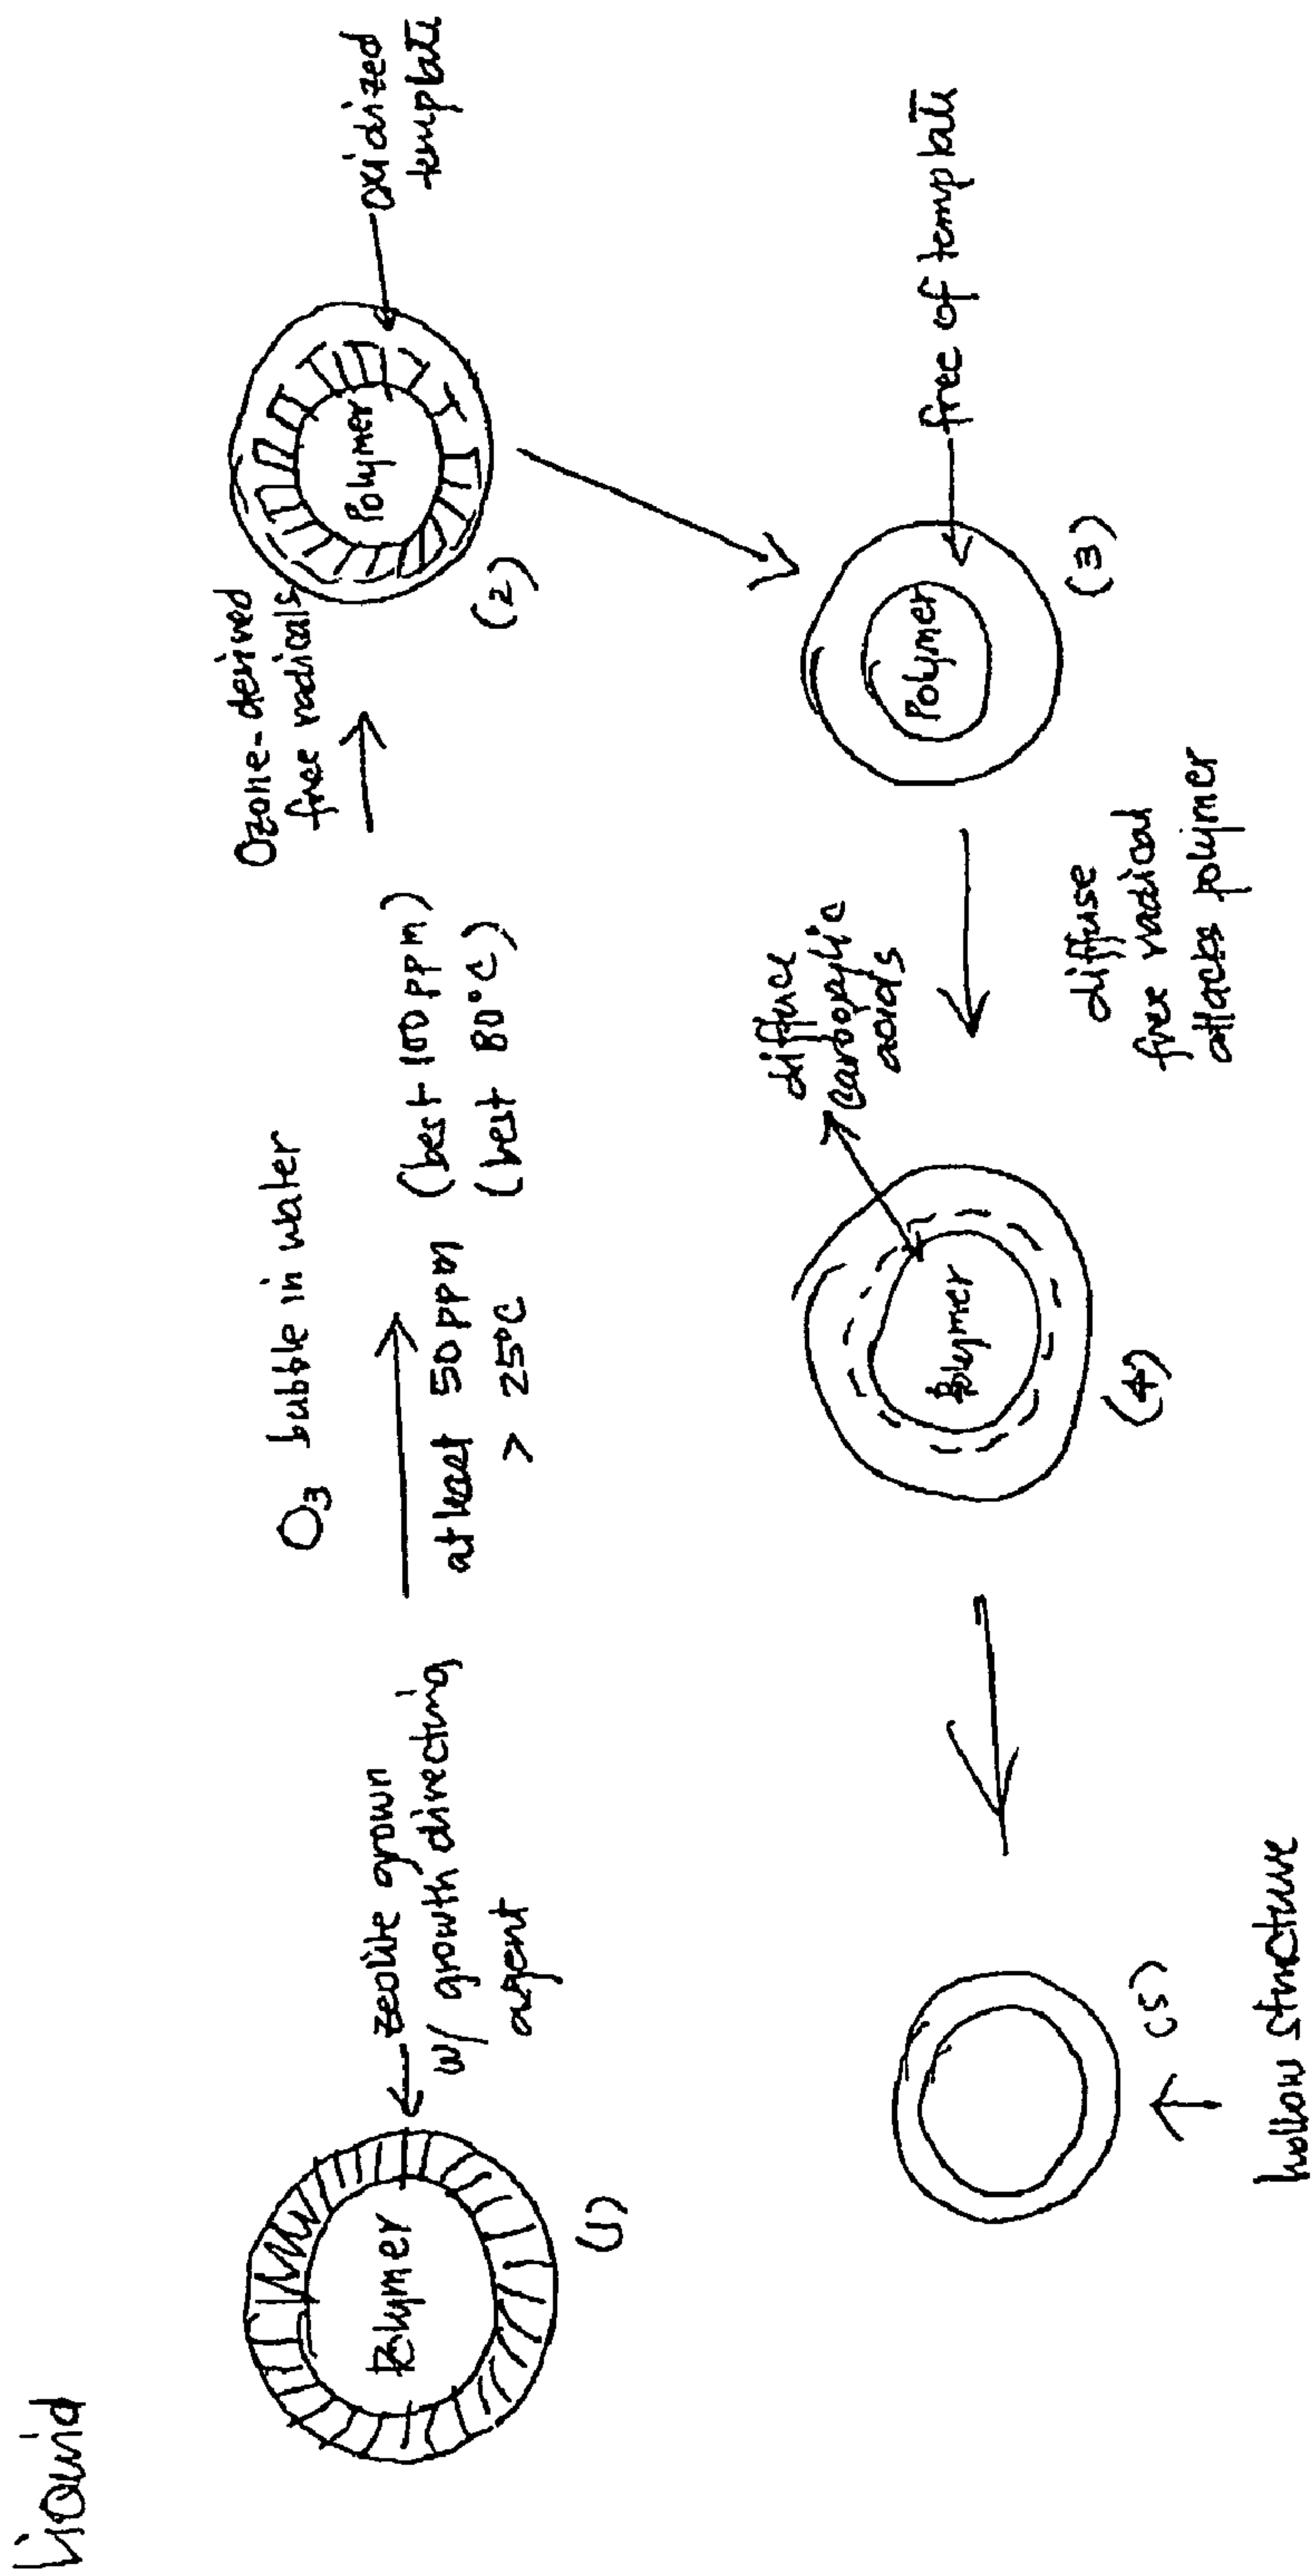 Liquid
Polymer
(1)
← zeolite grown
w/ growth directing
agent
O3 bubble in water
at least 50 ppm (best 100 ppm)
> 25°C (best 80°C)
Ozone-derived
free radicals
Polymer
(2)
oxidized
template
Polymer
(3)
free of template
diffuse
free radical
attacks polymer
diffuse
carboxylic
acids
Polymer
(4)
(5)
hollow structure